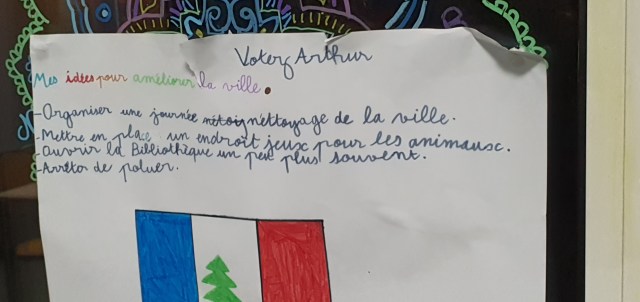 Voter Arthur
Mes idées pour améliorer la ville.
-Organiser une journée nettoyage de la ville.
-Mettre en place un endroit jeux pour les animausc.
-Ouvrir la Bibliothèque un peu plus souvent.
-Arrêter de poluer.